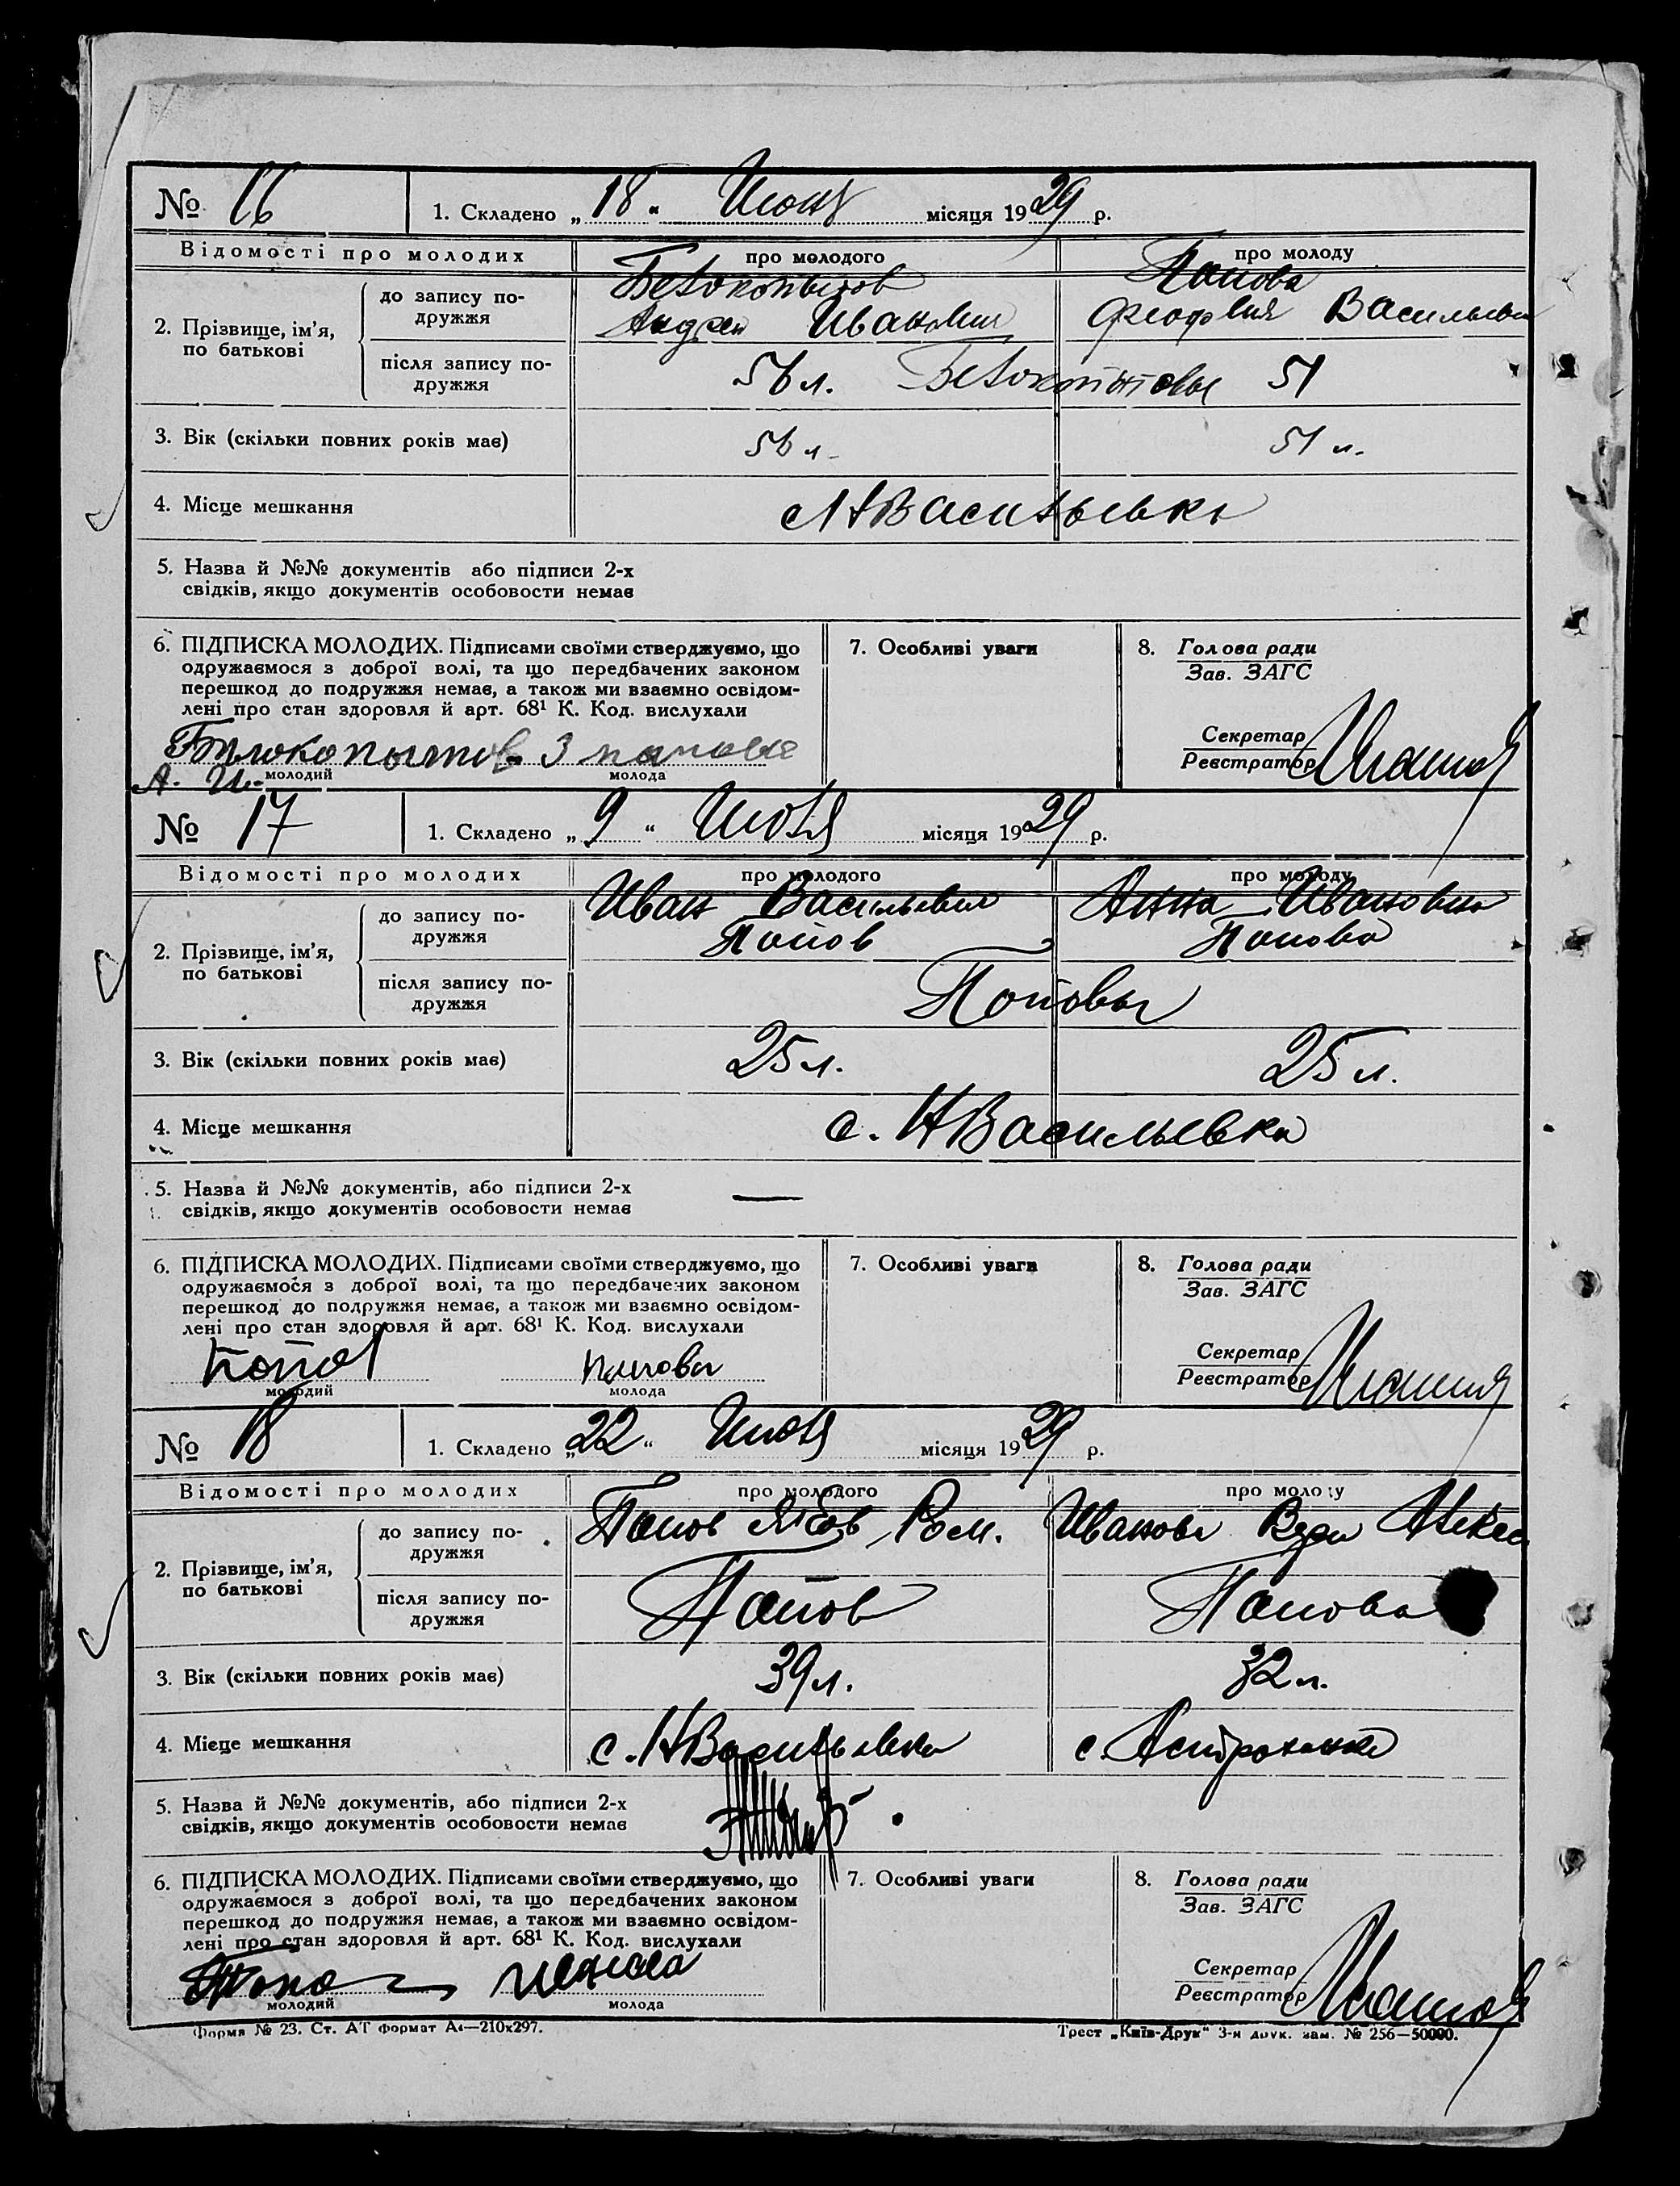 № 16 1. Складено „18" Июня місяця 1929 р.
Відомості про молодих про молодого про молоду
2. Прізвище, ім'я, по батькові
до запису подружжя Белокопытов Попова
Андрей Иванович Васильевна
після запису подружжя 56 л. Белокопытовы 51
3. Вік (скільки повних років має) 56 л. 51 л.
4. Місце мешкання НВасильевка
5. Назва й №№ документів або підписи 2-х
свідків, якщо документів особовости немає
6. ПІДПИСКА МОЛОДИХ. Підписами своїми стверджуємо, що
одружаємося з доброї волі, та що передбачених законом
перешкод до подружжя немає, а також ми взаємно освідом-
лені про стан здоровля й арт. 68¹ К. Код. вислухали
7. Особливі уваги
8. Голова ради
Зав. ЗАГС
Секретар
Реєстратор
Белокопытов
А. И. молодий молода
№ 17 1. Складено „9" Июля місяця 1929 р.
Відомості про молодих про молодого про молоду
2. Прізвище, ім'я, по батькові
до запису подружжя Иван Васильевич Анна Ивановна
Попов Попова
після запису подружжя Поповы
3. Вік (скільки повних років має) 25 л. 25 л.
4. Місце мешкання с. НВасильевка
5. Назва й №№ документів, або підписи 2-х —
свідків, якщо документів особовости немає
6. ПІДПИСКА МОЛОДИХ. Підписами своїми стверджуємо, що
одружаємося з доброї волі, та що передбачених законом
перешкод до подружжя немає, а також ми взаємно освідом-
лені про стан здоровля й арт. 68¹ К. Код. вислухали
7. Особливі уваги
8. Голова ради
Зав. ЗАГС
Секретар
Реєстратор
Попов Попова
молодий молода
№ 18 1. Складено „22" Июля місяця 1929 р.
Відомості про молодих про молодого про молоду
2. Прізвище, ім'я, по батькові
до запису подружжя Попов Яков Ром. Иванова Вера Алекс
після запису подружжя Попов Попова
3. Вік (скільки повних років має) 39 л. 32 л.
4. Місце мешкання с. НВасильевка с. Астраханка
5. Назва й №№ документів, або підписи 2-х
свідків, якщо документів особовости немає
6. ПІДПИСКА МОЛОДИХ. Підписами своїми стверджуємо, що
одружаємося з доброї волі, та що передбачених законом
перешкод до подружжя немає, а також ми взаємно освідом-
лені про стан здоровля й арт. 68¹ К. Код. вислухали
7. Особливі уваги
8. Голова ради
Зав. ЗАГС
Секретар
Реєстратор
молодий молода
Форма № 23. Ст. АТ формат А4—210х297. Трест „Київ-Друк" 3-я друк. зам. № 256—50000.